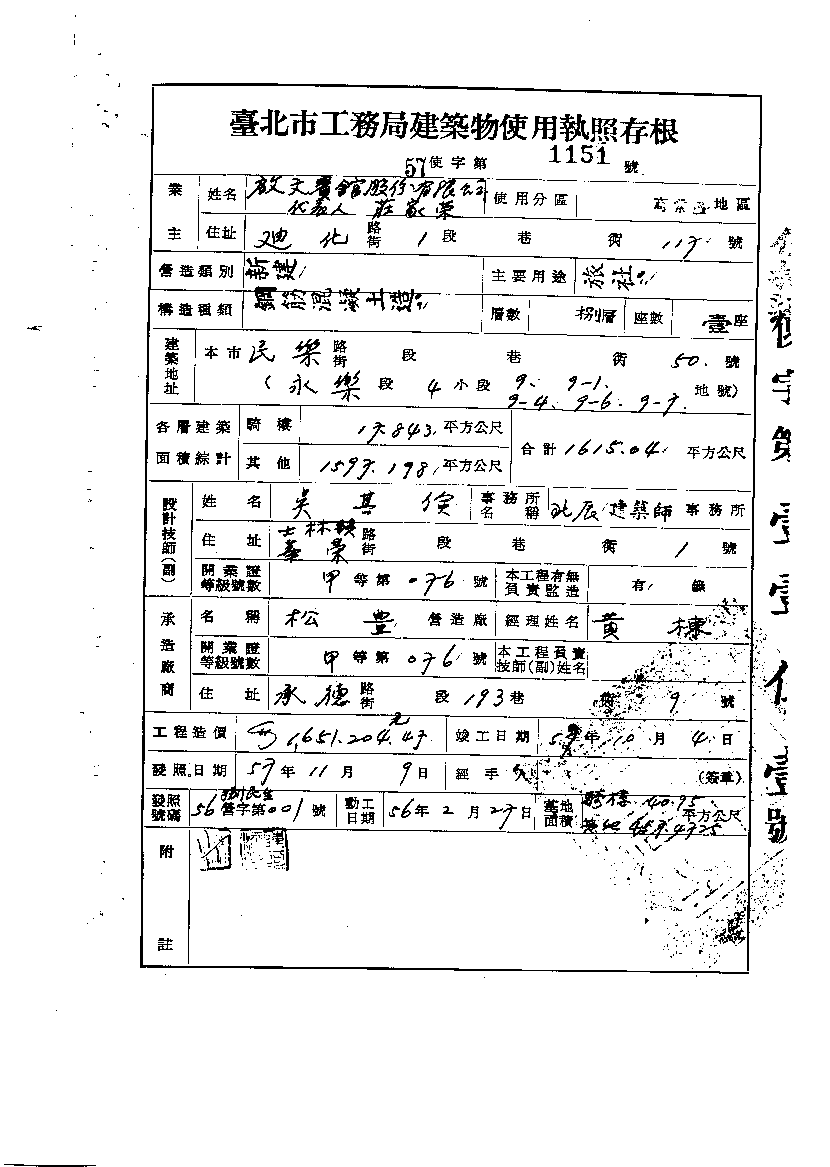 臺北市工務局建築物使用執照存根
57使字第 1151 號
業主 姓名 天賓館股份有限公司 代表人 莊家榮 使用分區 商業區地區
住址 迪化路街 1段 巷 衖 117號
營造類別 新建 主要用途 旅社
構造種類 鋼筋混凝土造 層數 捌層 座數 壹座
建築地址 本市民樂路街 段 巷 衖 50號
(永樂段 4小段 9、9-1、9-4、9-6、9-7 地號)
各層建築面積綜計 騎樓 17.843平方公尺 合計1615.04平方公尺
其他 1597.198平方公尺
設計技師(副) 姓名 吳其 事務所名稱 北辰建築師事務所
住址 士林鎮華榮路街 段 巷 衖 1號
開業證等級號數 甲等第076號 本工程有無負責監造 有
承造廠商 名稱 松豐營造廠 經理姓名 黃棟
開業證等級號數 甲等第076號 本工程負責技師(副)姓名
住址 承德路街 段 193巷 衖 9號
工程造價 1,651.204.47元 竣工日期 57年10月4日
發照日期 57年11月9日 經手人 (簽章)
發照號碼 56 營字第001號 動工日期 56年2月27日 基地面積 騎樓 40.95 平方公尺
附註
字第壹壹伍壹號